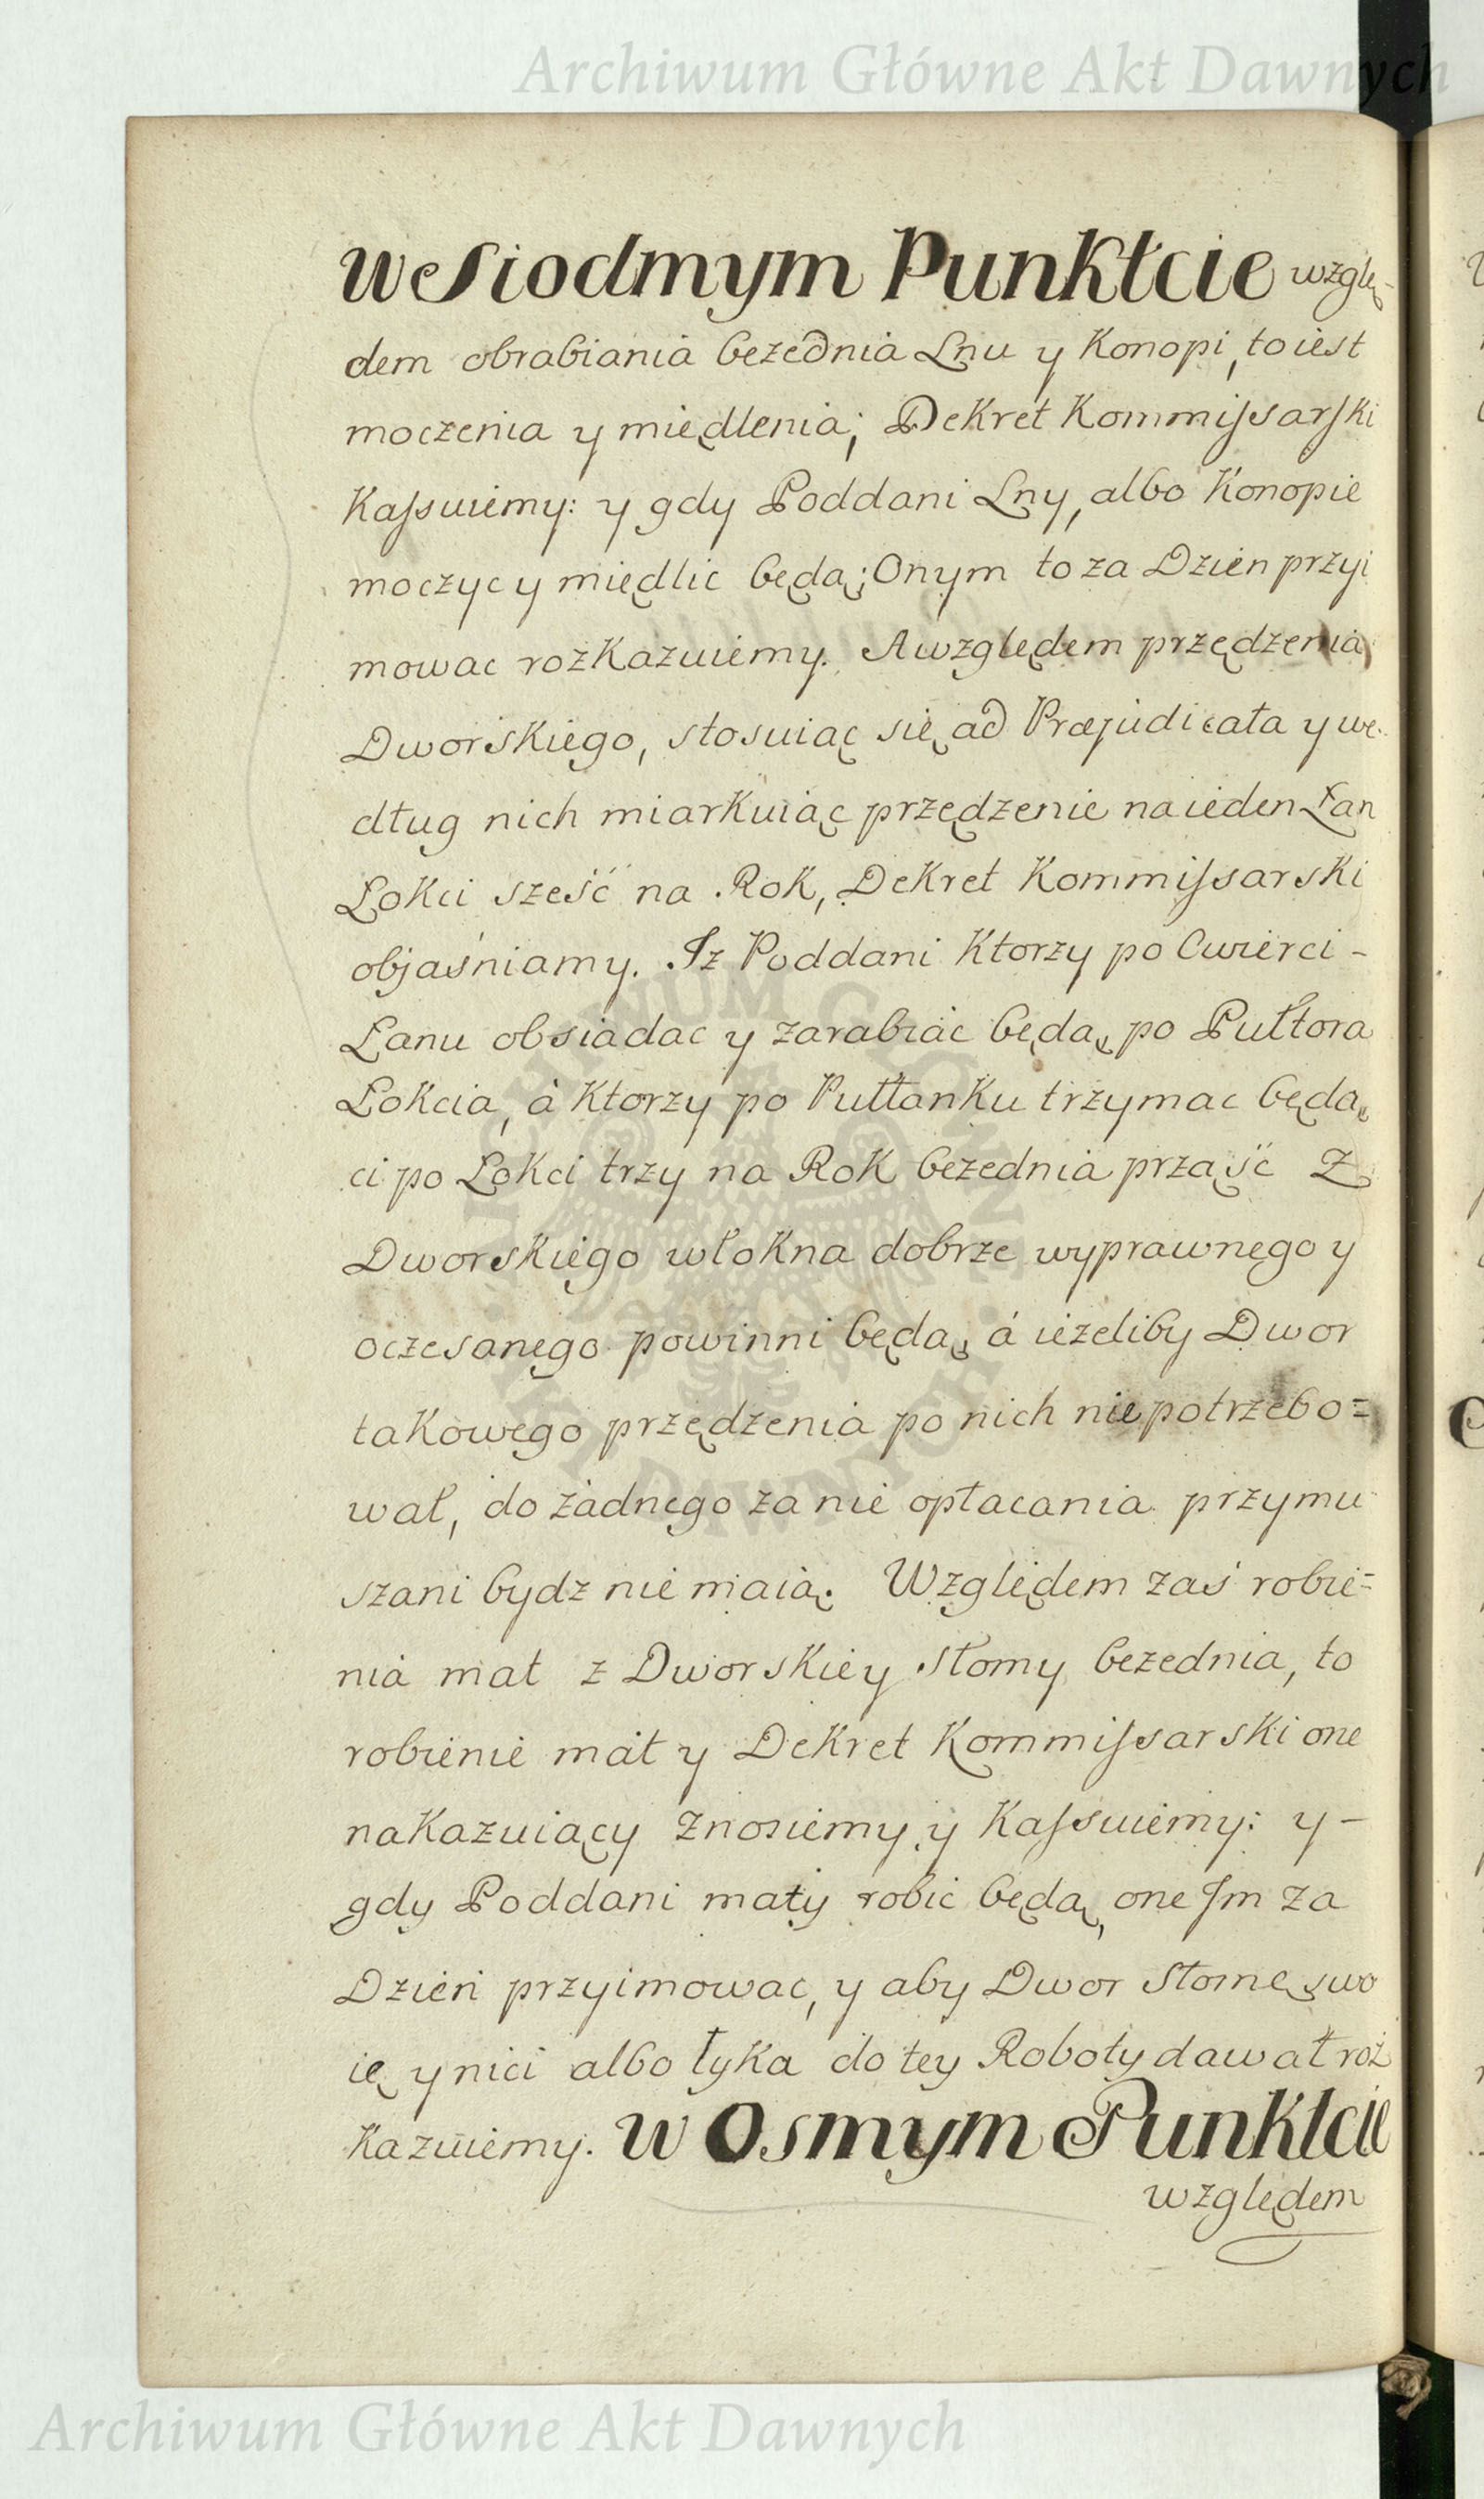 Archiwum Główne Akt Dawnych
We Siodmym Punktcie wzglę-
dem obrabiania bezednia Lnu y Konopi, to iest
moczenia y międlenia; Dekret Kommissarski
Kassuiemy: y gdy Poddani Lny, albo Konopie
moczyc y międlic będą; Onym to za Dzien przyi
mowac rozkazuiemy. A względem przędzenia
Dworskiego, stosuiąc się ad Præjudicata y we-
dług nich miarkuiąc przędzenie na ieden Łan
Łokci sześć na Rok, Dekret Kommissarski
objaśniamy. Iz Poddani Ktorzy po Cwierci -
Łanu obsiadac y zarabiac będą, po Pułtora
Łokcia, à Ktorzy po Pułłanku trzymac będą,
ci po Łokci trzy na Rok bezednia prząść Z
Dworskiego włokna dobrze wyprawnego y
oczesanego powinni będą, á ieżeliby Dwor
takowego przędzenia po nich niepotrzebo=
wał, do żadnego za nie opłacania przymu
szani bydz nie maią. Względem zaś robie=
nia mat z Dworskiey słomy bezednia, to
robienie mat y Dekret Kommissarski one
nakazuiący znosiemy y Kassuiemy: y -
gdy Poddani maty robic będą, one Im za
Dzień przyimowac, y aby Dwor Słomę swo
ię y nici albo łyka do tey Roboty dawał roz
kazuiemy. W Osmym Punktcie
względem
ARCHIWUM GŁÓWNE AKT DAWNYCH
Archiwum Główne Akt Dawnych